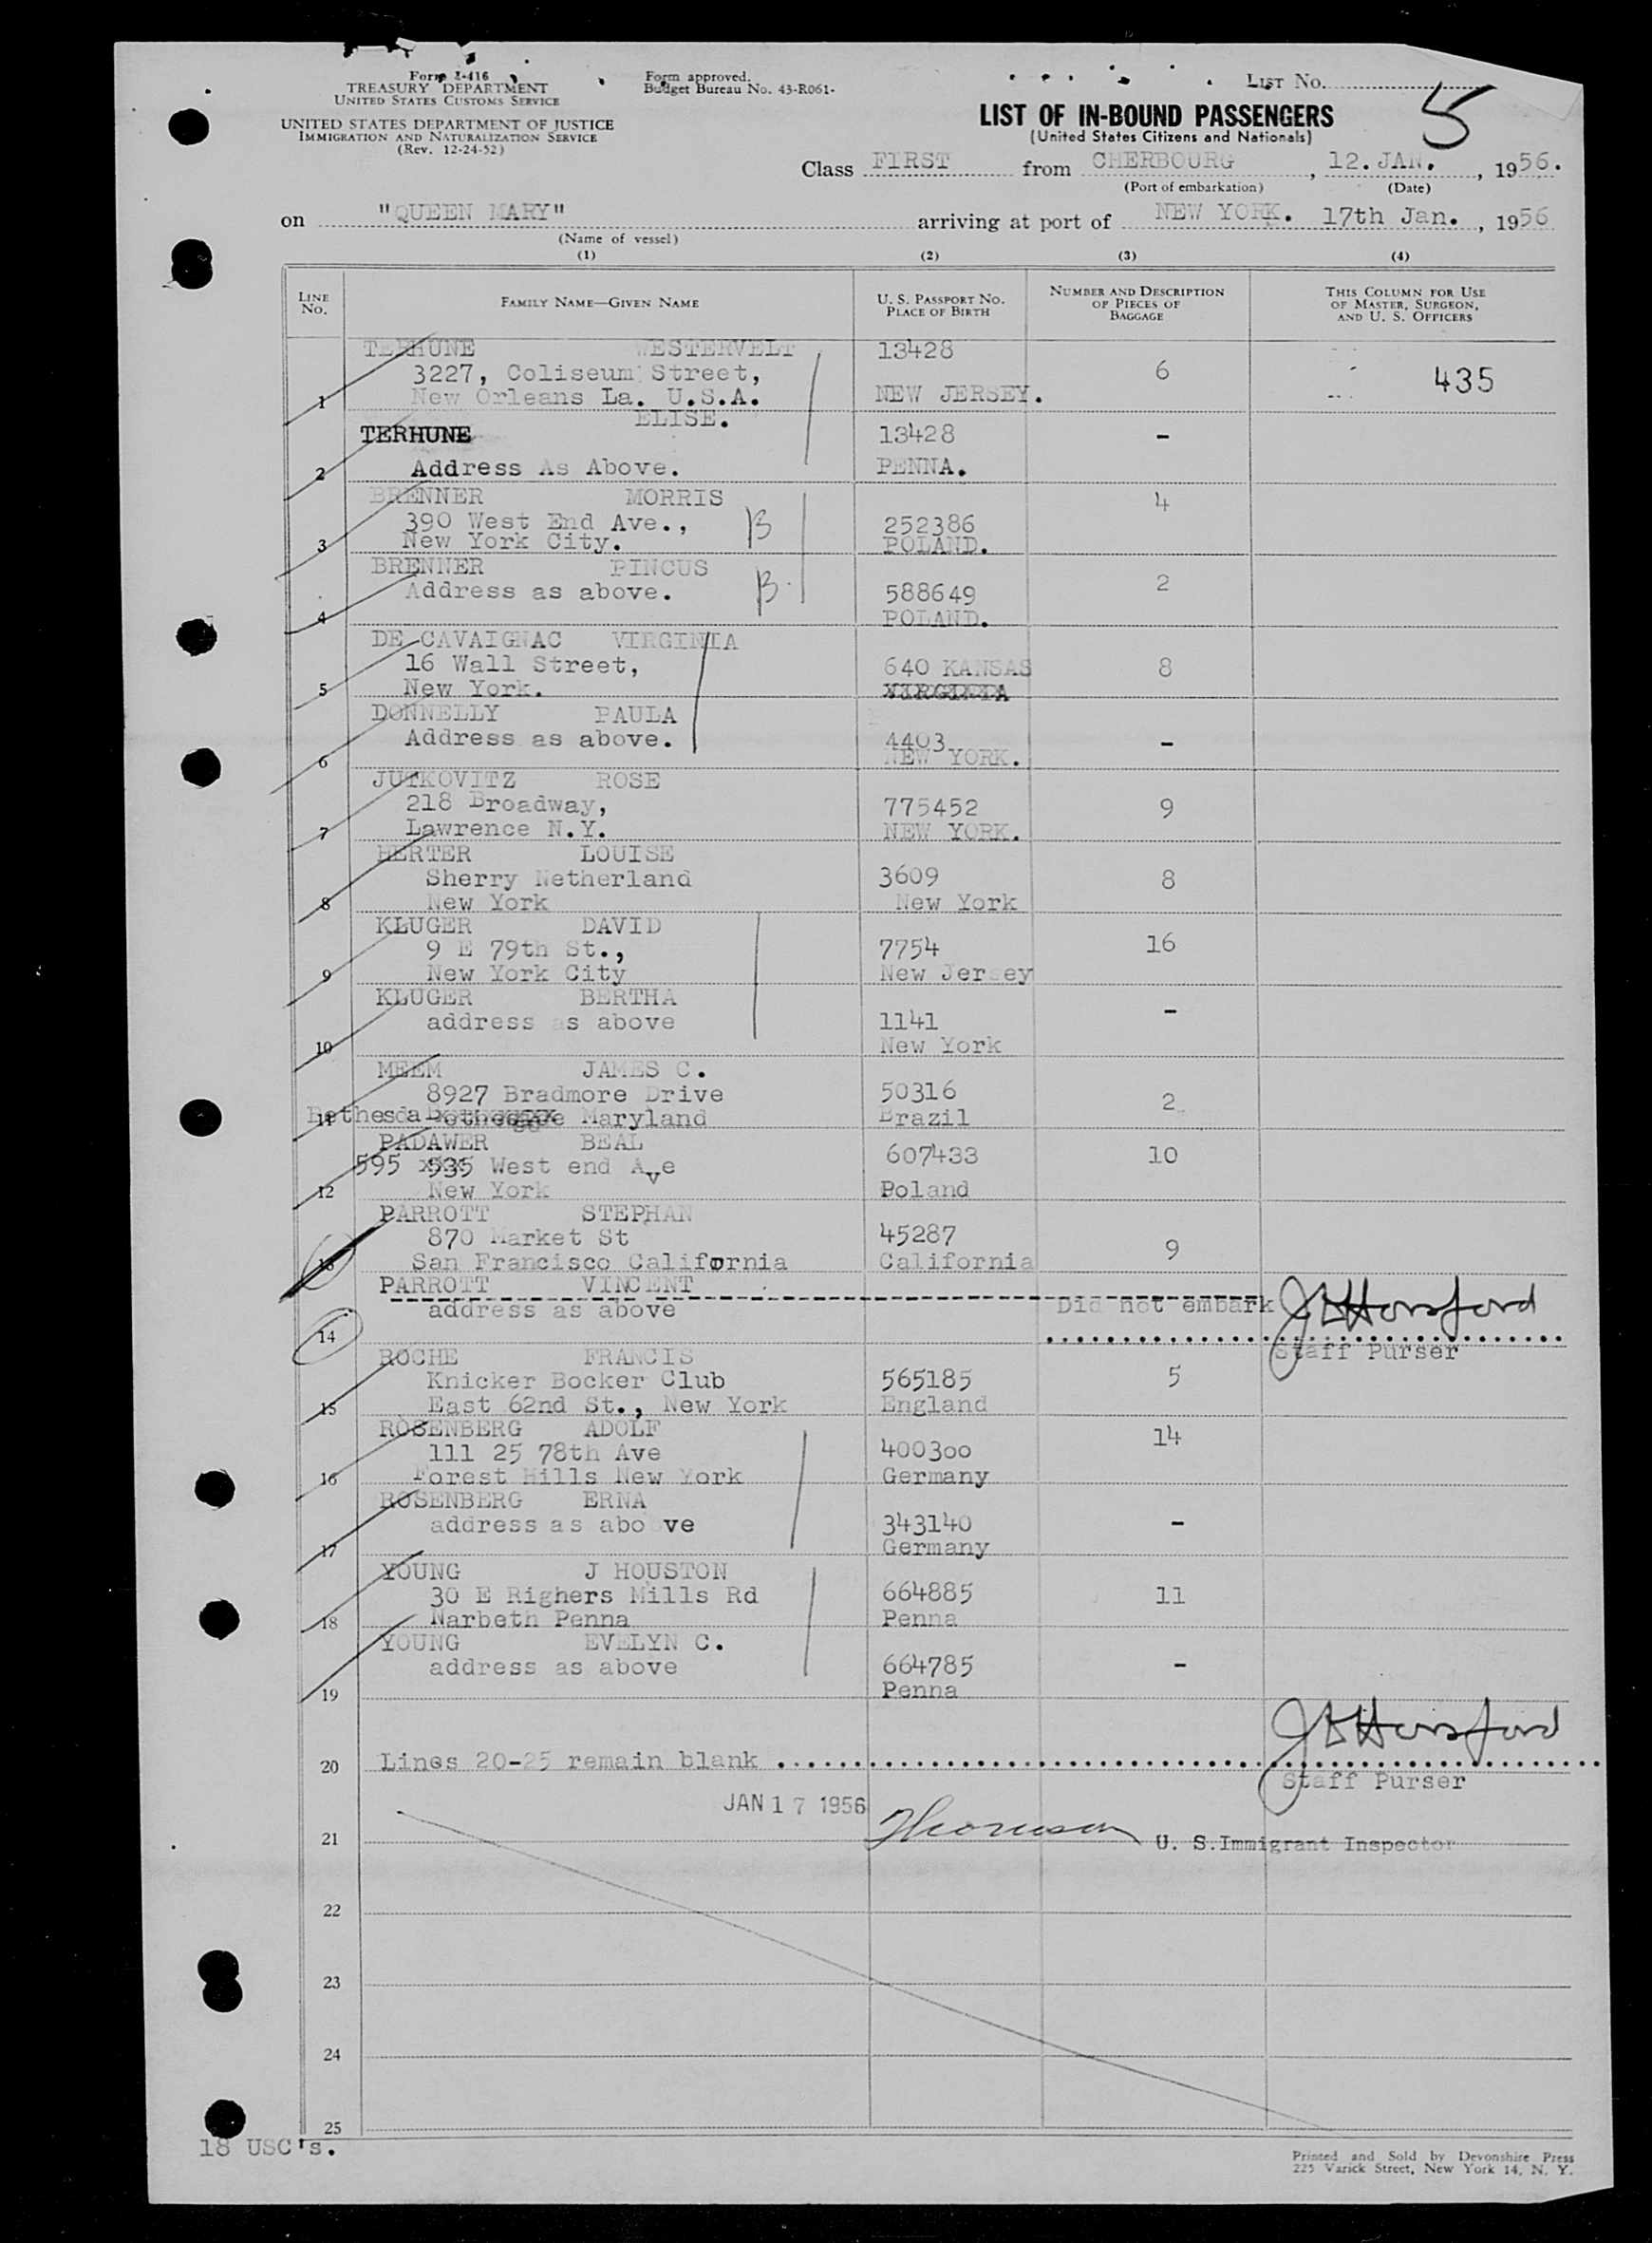 Form I-416
TREASURY DEPARTMENT
UNITED STATES CUSTOMS SERVICE
UNITED STATES DEPARTMENT OF JUSTICE
IMMIGRATION AND NATURALIZATION SERVICE
(Rev. 12-24-52)
Form approved.
Budget Bureau No. 43-R061-
LIST NO. 5
LIST OF IN-BOUND PASSENGERS
(United States Citizens and Nationals)
Class FIRST from CHERBOURG, 12.JAN., 1956.
(Port of embarkation) (Date)
on "QUEEN MARY" arriving at port of NEW YORK. 17th Jan., 1956
(Name of vessel)
(1) (2) (3) (4)
LINE NO. FAMILY NAME—GIVEN NAME U. S. PASSPORT NO. PLACE OF BIRTH NUMBER AND DESCRIPTION OF PIECES OF BAGGAGE THIS COLUMN FOR USE OF MASTER, SURGEON, AND U. S. OFFICERS
TERHUNE WESTERVELT 13428
3227, Coliseum Street, 6 435
1 New Orleans La. U.S.A. NEW JERSEY.
ELISE.
TERHUNE 13428 -
2 Address As Above. PENNA.
BRENNER MORRIS 4
390 West End Ave., B 252386
3 New York City. POLAND.
BRENNER PINCUS 2
Address as above. B 588649
4 POLAND.
DE CAVAIGNAC VIRGINIA
16 Wall Street, 640 KANSAS 8
5 New York. VIRGINIA
DONNELLY PAULA
Address as above. 4403 -
6 NEW YORK.
JUTKOVITZ ROSE
218 Broadway, 775452 9
7 Lawrence N.Y. NEW YORK.
HERTER LOUISE
Sherry Netherland 3609 8
8 New York New York
KLUGER DAVID
9 E 79th St., 7754 16
9 New York City New Jersey
KLUGER BERTHA
address as above 1141 -
10 New York
MEEM JAMES C.
8927 Bradmore Drive 50316 2
11 Bethesda Maryland Brazil
PADAWER BEAL 607433 10
595 535 West end Ave
12 New York Poland
PARROTT STEPHAN
870 Market St 45287 9
13 San Francisco California California
PARROTT VINCENT
address as above Did not embark JBHorsford
14
Staff Purser
ROCHE FRANCIS
Knicker Bocker Club 565185 5
15 East 62nd St., New York England
ROSENBERG ADOLF 14
111 25 78th Ave 400300
16 Forest Hills New York Germany
ROSENBERG ERNA
address as abo ve 343140 -
17 Germany
YOUNG J HOUSTON
30 E Righers Mills Rd 664885 11
18 Narbeth Penna Penna
YOUNG EVELYN C.
address as above 664785 -
19 Penna
JBHorsford
20 Lines 20-25 remain blank
Staff Purser
JAN 17 1956
21 U. S.Immigrant Inspector
22
23
24
25
18 USC's.
Printed and Sold by Devonshire Press
225 Varick Street, New York 14, N. Y.